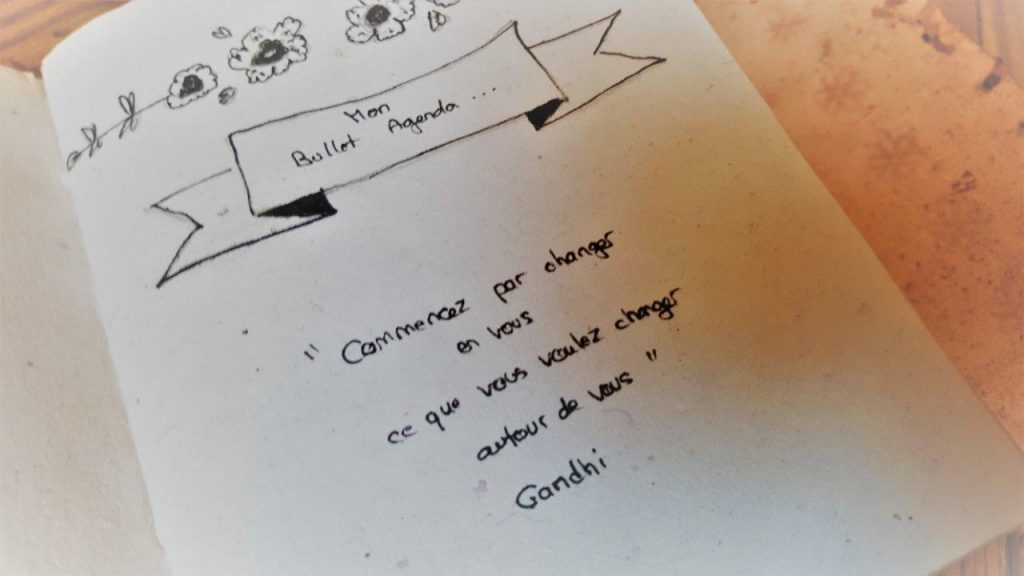 Mon
Bullet Agenda ...
" Commencez par changer
en vous
ce que vous voulez changer
autour de vous "
Gandhi